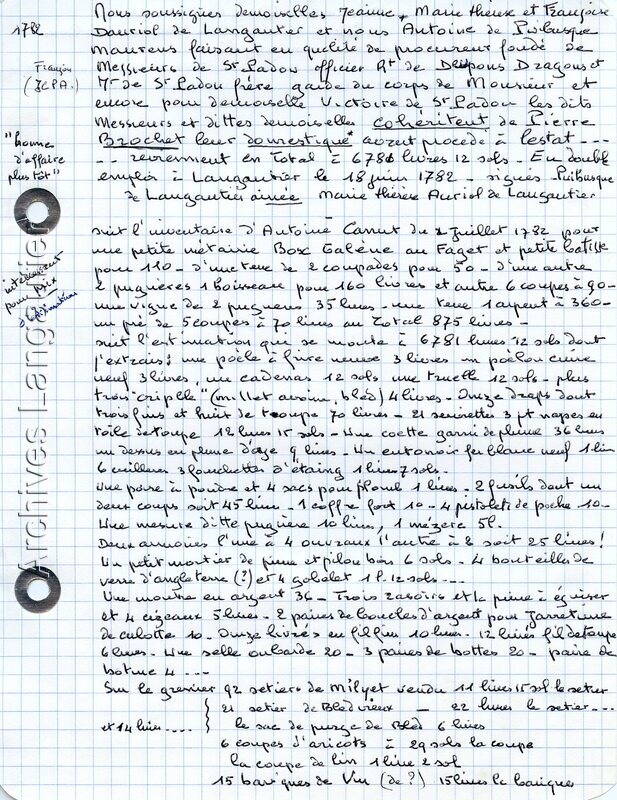 1782
Françon
(JCPA.)
"homme
d'affaire
plus tôt"
intéressant
pour prix
d'estimation
Archives Langautier
Nous soussignés demoiselles Jeanne, Marie thérèse et Françoise
Dauriol de Langautier et nous Antoine de Puibusque
Maurens faisant en qualité de procureur fondé de
Messieurs de St Ladou officier Rt de Dragons et
Mr de St Ladou frère garde du corps de Monsieur et
encore pour demoiselle Victoire de St Ladou les dits
Messieurs et dittes demoiselles cohéritent de Pierre
Brochet leur domestique* avont procédé à l'estat ...
... reviennent en Total à 6781 livres 12 sols. En double
employ à Langautier le 18 juin 1782 - signés Puibusque
de Langautier ainée Marie thérèse Auriol de Langautier
suit l'inventaire d'Antoine Canut du 2 Juillet 1782 pour
une petite métairie Box Galène au Faget et petite batisse
pour 110 - d'une terre de 2 coupades pour 50 - d'une autre
2 pugnères 1 boisseau pour 160 livres et autre 6 coupes à 90 -
une vigne de 2 pugneres 35 livres - une terre 1 arpent à 360 -
un pré de 5 coupes à 70 livres au Total 875 livres -
suit l'estimation qui se monte à 6781 livres 12 sols dont
j'extrais : une poële à frire neuve 3 livres un poëlon cuivre
neuf 3 livres, un cadenas 12 sols une truelle 12 sols - plus
trois "crible" (millet avoine, bled) 4 livres - Onze draps dont
trois fins et huit de toupe 70 livres - 21 serviettes 3 pt napes en
toile de toupe 12 livres 15 sols - Une coette garni de plume 36 livres
un dessus en plume d'oye 9 livres - Un entonoir fer blanc neuf 1 livre
6 cuilleres 3 fourchettes d'étaing 1 livre 7 sols.
Une poire à poudre et 4 sacs pour plomb 1 livre - 2 fusils dont un
deux coups soit 45 livres - 1 coffre fort 10 - 4 pistolets de poche 10 -
Une mesure ditte pugnère 10 livres, 1 mézère 5l.
Deux armoires l'une à 4 ouvraux l'autre à 2 soit 25 livres !
Un petit mortier de pierre et pilon bois 6 sols - 4 bouteilles de
verre d'angleterre (?) et 4 gobelet 1 l. 12 sols ...
Une montre en argent 36 - Trois rasoirs et la pierre à éguiser
et 4 cizeaux 5 livres - 2 paires de boucles d'argent pour Jarretière
de culotte 10 - Onze livres en fil fin 10 livres - 12 livres fil de toupe
6 livres - Une selle 20 - 3 paires de bottes 20 - paire de
botine 4 ...
Sur le grenier 92 setiers de Milyet vendu 11 livres 15 sol le setier
et 14 livres .... 21 setier de Bled vieux - 22 livres le setier ...
le sac de purge de Bled 6 livres
6 coupes d'aricots à 29 sols la coupe
la coupe de lin 1 livre 2 sol
15 bariques de Vin (de ?) 15 livres la barique